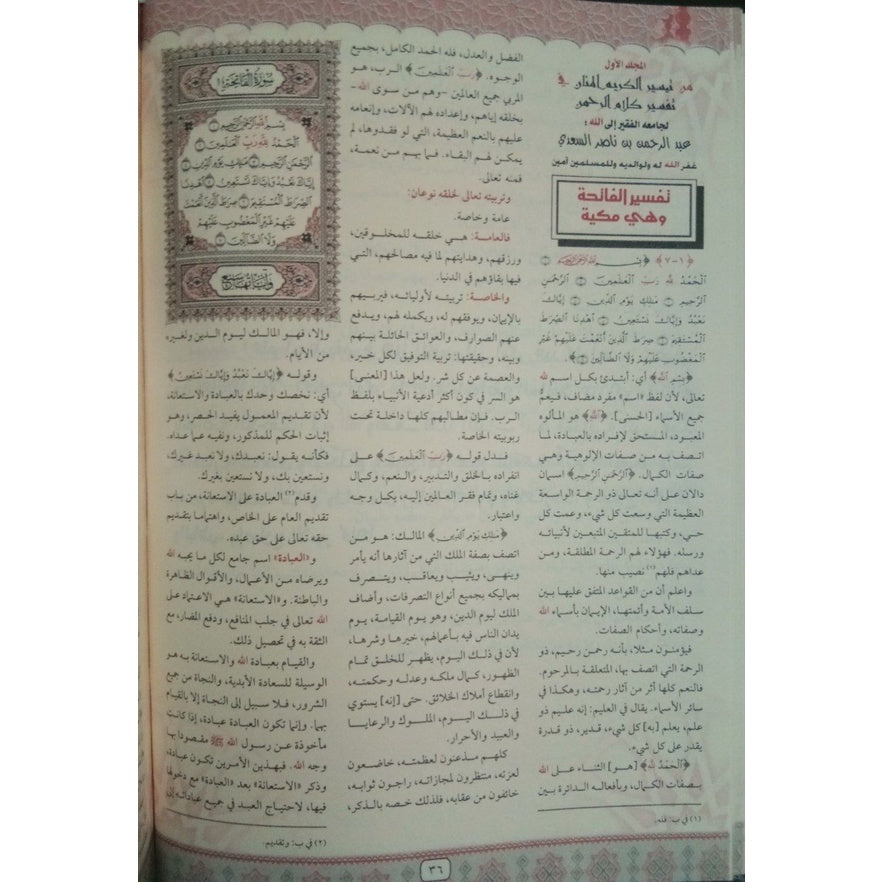 المجلد الأول
من تيسير الكريم المنان في
تفسير كلام الرحمن
لجامعه الفقير إلى الله :
عبد الرحمن بن ناصر السعدي
غفر الله له ولوالديه وللمسلمين آمين
تفسير الفاتحة
وهي مكية
﴿١-٧﴾ ﴿بِسْمِ اللَّهِ الرَّحْمَٰنِ الرَّحِيمِ ۝١
الْحَمْدُ لِلَّهِ رَبِّ الْعَالَمِينَ ۝٢ الرَّحْمَٰنِ
الرَّحِيمِ ۝٣ مَالِكِ يَوْمِ الدِّينِ ۝٤ إِيَّاكَ
نَعْبُدُ وَإِيَّاكَ نَسْتَعِينُ ۝٥ اهْدِنَا الصِّرَاطَ
الْمُسْتَقِيمَ ۝٦ صِرَاطَ الَّذِينَ أَنْعَمْتَ عَلَيْهِمْ غَيْرِ
الْمَغْضُوبِ عَلَيْهِمْ وَلَا الضَّالِّينَ ۝٧﴾.
﴿بِسْمِ اللَّهِ﴾ أي: أبتدئ بكل اسم لله
تعالى، لأن لفظ «اسم» مفرد مضاف، فيعمُّ
جميع الأسماء [الحسنى]. ﴿اللَّهِ﴾ هو المألوه
المعبود، المستحق لإفراده بالعبادة، لما
اتصف به من صفات الإلوهية وهي
صفات الكمال. ﴿الرَّحْمَٰنِ الرَّحِيمِ﴾ اسمان
دالان على أنه تعالى ذو الرحمة الواسعة
العظيمة التي وسعت كل شيء، وعمت كل
حي، وكتبها للمتقين المتبعين لأنبيائه
ورسله. فهؤلاء لهم الرحمة المطلقة، ومن
عداهم فلهم(١) نصيب منها.
واعلم أن من القواعد المتفق عليها بين
سلف الأمة وأئمتها، الإيمان بأسماء الله
وصفاته، وأحكام الصفات.
فيؤمنون مثلا، بأنه رحمن رحيم، ذو
الرحمة التي اتصف بها، المتعلقة بالمرحوم.
فالنعم كلها أثر من آثار رحمته، وهكذا في
سائر الأسماء. يقال في العليم: إنه عليم ذو
علم، يعلم [به] كل شيء، قدير، ذو قدرة
يقدر على كل شيء.
﴿الْحَمْدُ لِلَّهِ﴾ [هو] الثناء على الله
بصفات الكمال، وبأفعاله الدائرة بين
(١) في ب: فله.
الفضل والعدل، فله الحمد الكامل، بجميع
الوجوه. ﴿رَبِّ الْعَالَمِينَ﴾ الرب، هو
المربي جميع العالمين -وهم من سوى الله-
بخلقه إياهم، وإعداده لهم الآلات، وإنعامه
عليهم بالنعم العظيمة، التي لو فقدوها، لم
يمكن لهم البقاء. فما بهم من نعمة،
فمنه تعالى.
وتربيته تعالى لخلقه نوعان:
عامة وخاصة.
فالعامة: هي خلقه للمخلوقين،
ورزقهم، وهدايتهم لما فيه مصالحهم، التي
فيها بقاؤهم في الدنيا.
والخاصة: تربيته لأوليائه، فيربيهم
بالإيمان، ويوفقهم له، ويكمله لهم، ويدفع
عنهم الصوارف، والعوائق الحائلة بينهم
وبينه، وحقيقتها: تربية التوفيق لكل خير،
والعصمة عن كل شر. ولعل هذا [المعنى]
هو السر في كون أكثر أدعية الأنبياء بلفظ
الرب. فإن مطالبهم كلها داخلة تحت
ربوبيته الخاصة.
فدل قوله ﴿رَبِّ الْعَالَمِينَ﴾ على
انفراده بالخلق والتدبير، والنعم، وكمال
غناه، وتمام فقر العالمين إليه، بكل وجه
واعتبار.
﴿مَالِكِ يَوْمِ الدِّينِ﴾ المالك: هو من
اتصف بصفة الملك التي من آثارها أنه يأمر
وينهى، ويثيب ويعاقب، ويتصرف
بمماليكه بجميع أنواع التصرفات، وأضاف
الملك ليوم الدين، وهو يوم القيامة، يوم
يدان الناس فيه بأعمالهم، خيرها وشرها،
لأن في ذلك اليوم، يظهر للخلق تمام
الظهور، كمال ملكه وعدله وحكمته،
وانقطاع أملاك الخلائق. حتى [إنه] يستوي
في ذلك اليوم، الملوك والرعايا
والعبيد والأحرار.
كلهم مذعنون لعظمته، خاضعون
لعزته، منتظرون لمجازاته، راجون ثوابه،
خائفون من عقابه، فلذلك خصه بالذكر،
سورة الفاتحة
بِسْمِ اللَّهِ الرَّحْمَٰنِ الرَّحِيمِ ۝١
الْحَمْدُ لِلَّهِ رَبِّ الْعَالَمِينَ ۝٢
الرَّحْمَٰنِ الرَّحِيمِ ۝٣ مَالِكِ يَوْمِ الدِّينِ ۝٤
إِيَّاكَ نَعْبُدُ وَإِيَّاكَ نَسْتَعِينُ ۝٥ اهْدِنَا
الصِّرَاطَ الْمُسْتَقِيمَ ۝٦ صِرَاطَ الَّذِينَ أَنْعَمْتَ
عَلَيْهِمْ غَيْرِ الْمَغْضُوبِ عَلَيْهِمْ
وَلَا الضَّالِّينَ ۝٧
وآياتها سبع
وإلا، فهو المالك ليوم الدين ولغيره
من الأيام.
وقوله ﴿إِيَّاكَ نَعْبُدُ وَإِيَّاكَ نَسْتَعِينُ﴾
أي: نخصك وحدك بالعبادة والاستعانة،
لأن تقديم المعمول يفيد الحصر، وهو
إثبات الحكم للمذكور، ونفيه عما عداه.
فكأنه يقول: نعبدك، ولا نعبد غيرك،
ونستعين بك، ولا نستعين بغيرك.
وقدم(٢) العبادة على الاستعانة، من باب
تقديم العام على الخاص، واهتماما بتقديم
حقه تعالى على حق عبده.
و«العبادة» اسم جامع لكل ما يحبه الله
ويرضاه من الأعمال، والأقوال الظاهرة
والباطنة. و«الاستعانة» هي الاعتماد على
الله تعالى في جلب المنافع، ودفع المضار، مع
الثقة به في تحصيل ذلك.
والقيام بعبادة الله والاستعانة به هو
الوسيلة للسعادة الأبدية، والنجاة من جميع
الشرور، فلا سبيل إلى النجاة إلا بالقيام
بهما. وإنما تكون العبادة عبادة، إذا كانت
مأخوذة عن رسول الله ﷺ مقصودا بها
وجه الله. فبهذين الأمرين تكون عبادة،
وذكر «الاستعانة» بعد «العبادة» مع دخولها
فيها، لاحتياج العبد في جميع عباداته إلى
(٢) في ب: وتقديم.
٣٦